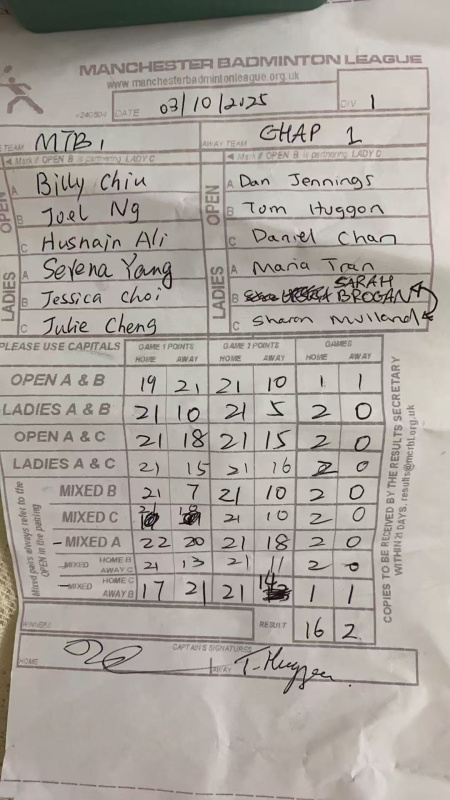 MANCHESTER BADMINTON LEAGUE
www.manchesterbadmintonleague.org.uk
DATE 03/10/2025 DIV 1
TEAM MTB 1 AWAY TEAM CHAP 1
Mark if OPEN B is partnering LADY C Mark if OPEN B is partnering LADY C
OPEN A Billy Chiu OPEN A Dan Jennings
B Joel Ng B Tom Huggon
C Husnain Ali C Daniel Chan
LADIES A Serena Yang LADIES A Maria Tran
B Jessica Choi B SARAH BROGAN
C Julie Cheng C Sharon Mulland
PLEASE USE CAPITALS GAME 1 POINTS GAME 2 POINTS GAMES
HOME AWAY HOME AWAY HOME AWAY
OPEN A & B 19 21 21 10 1 1
LADIES A & B 21 10 21 5 2 0
OPEN A & C 21 18 21 15 2 0
LADIES A & C 21 15 21 16 2 0
MIXED B 21 7 21 10 2 0
MIXED C 21 10 2 0
MIXED A 22 20 21 18 2 0
MIXED HOME B AWAY C 21 13 21 11 2 0
MIXED HOME C AWAY B 17 21 21 14 1 1
WINNERS RESULT 16 2
CAPTAIN'S SIGNATURES
HOME AWAY T. Huggon
Mixed pairs always refer to the OPEN in the pairing
COPIES TO BE RECEIVED BY THE RESULTS SECRETARY